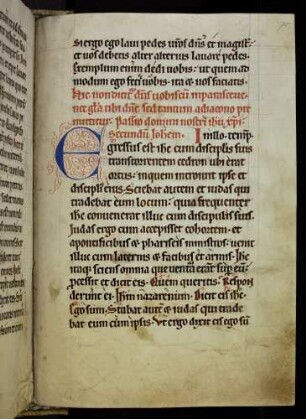 Si ergo ego lavi pedes vr̄os dn̄s et magist̄
et vos debetis alter alterius lavare pedes.
exemplum enim dedi vobis. ut quem ad
modum ego feci vobis. ita et vos faciatis.
Hic non dicit dn̄s vobiscū
gl̄a tibi dn̄e sed tantum a diacono pre
mittitur. Passio domini nostri ih̄u xp̄i
Secundum Johem̄. In illo temp̄.
Egressus est ihc cum discipulis suis
trans torrentem cedron ubi erat
ortus. in quem introivit ipse et
discipuli eius. Sciebat autem et iudas qui
tradebat eum locum. quia frequenter
ihc convenerat illuc cum discipulis suis.
Iudas ergo cum accepisset cohortem. et a
pontificibus et phariseis ministros. venit
illuc cum laternis et facibus et armis. Ihc
itaq; sciens omnia que ventura erāt sup̄ eū
p̄cessit et dicit eis. Quem queritis. Respon
derunt ei. Ihm̄ nazarenum. Dicit eis ihc.
Ego sum. Stabat autē et iudas qui trade
bat eum cum ipsis. Ut ergo dixit eis ego sū